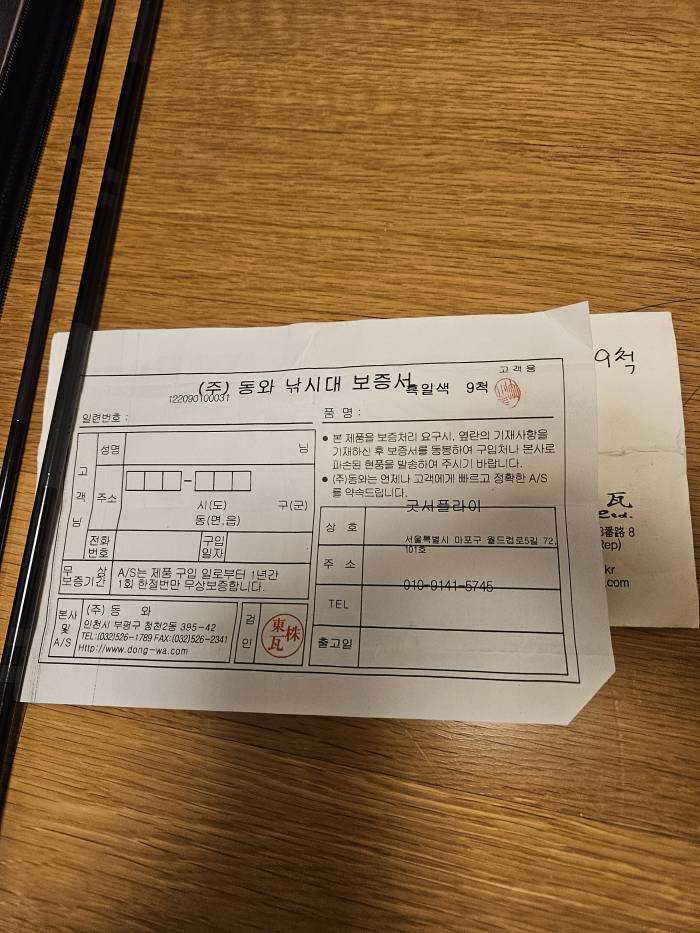 고객용
(주) 동와 낚시대 보증서
흑일색 9척
122090100031
일련번호 :
품 명 :
고객님
성명
님
주소
시(도) 구(군)
동(면.읍)
전화번호
구입일자
무상보증기간
A/S는 제품 구입 일로부터 1년간
1회 한절번만 무상보증합니다.
본사 및 A/S
(주) 동 와
인천시 부평구 청천2동 395-42
TEL:(032)526-1789 FAX:(032)526-2341
Http://www.dong-wa.com
검인
株東瓦
● 본 제품을 보증처리 요구시, 옆란의 기재사항을
기재하신 후 보증서를 동봉하여 구입처나 본사로
파손된 현품을 발송하여 주시기 바랍니다.
● (주)동와는 언제나 고객에게 빠르고 정확한 A/S
를 약속드립니다.
상 호
굿서플라이
주 소
서울특별시 마포구 월드컵로5길 72,
101호
TEL
010-9141-5745
출고일
9척
瓦
番路 8
Rep)
kr
.com